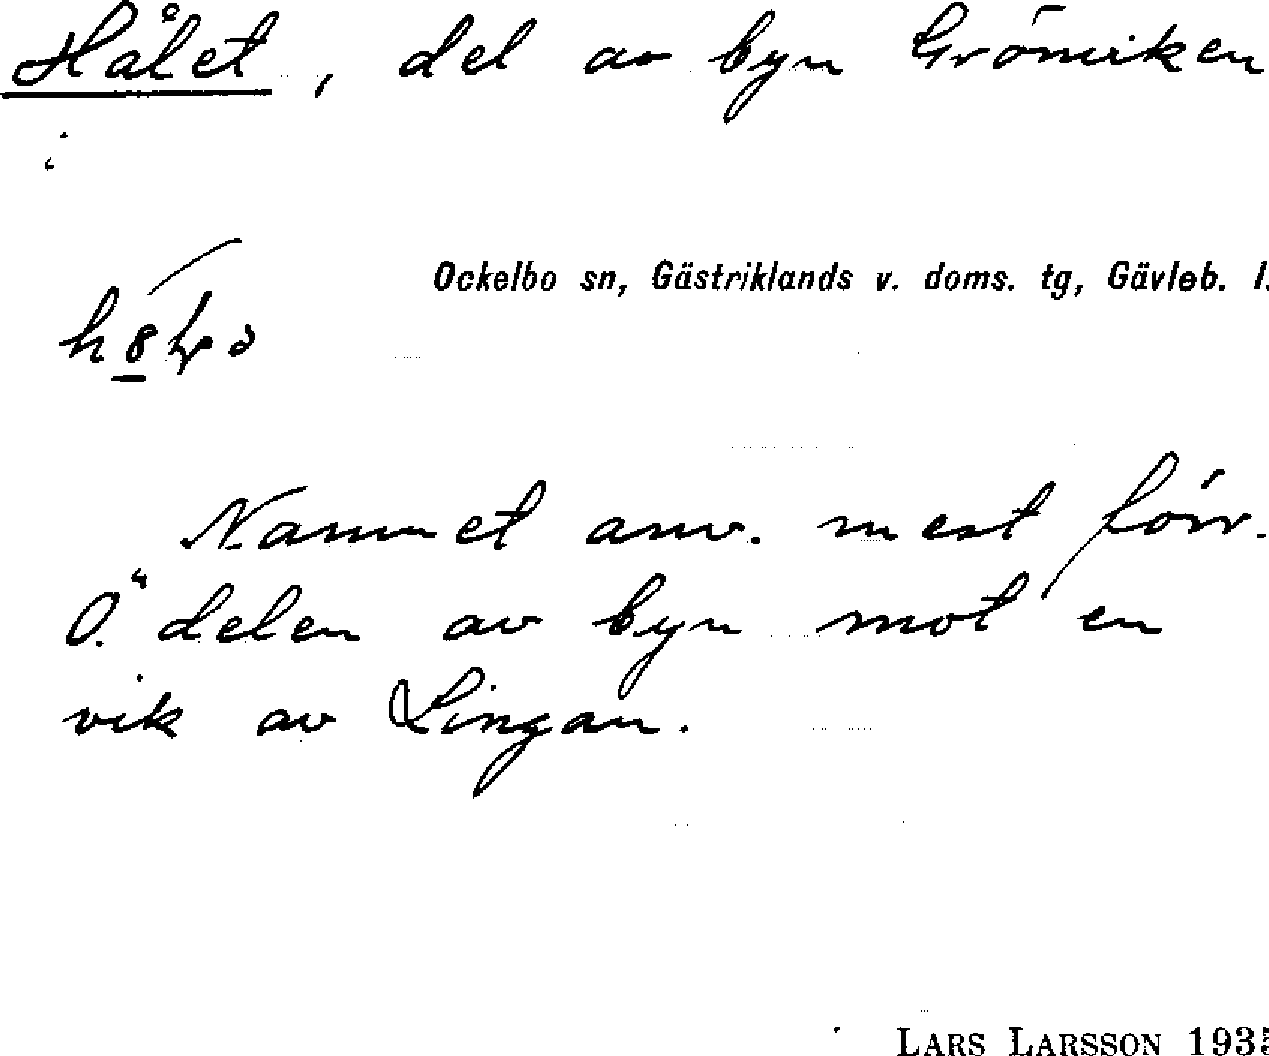 Hålet, del av byn Grönviken
i
Ockelbo sn, Gästriklands v. doms. tg, Gävleb. l.
Namnet anv. mest förr.
Ö. delen av byn mot en
vik av Lingan.
LARS LARSSON 193